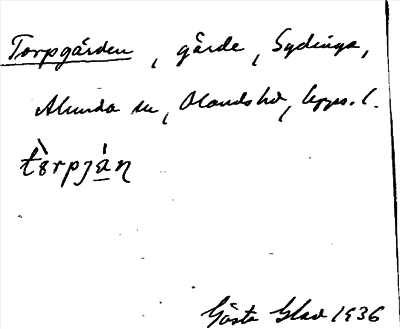 Torpgärden, gärde, Sydinga,
Alunda sn, Olands hd, Upps. l.
tòrpjàn
Gösta Glad 1936